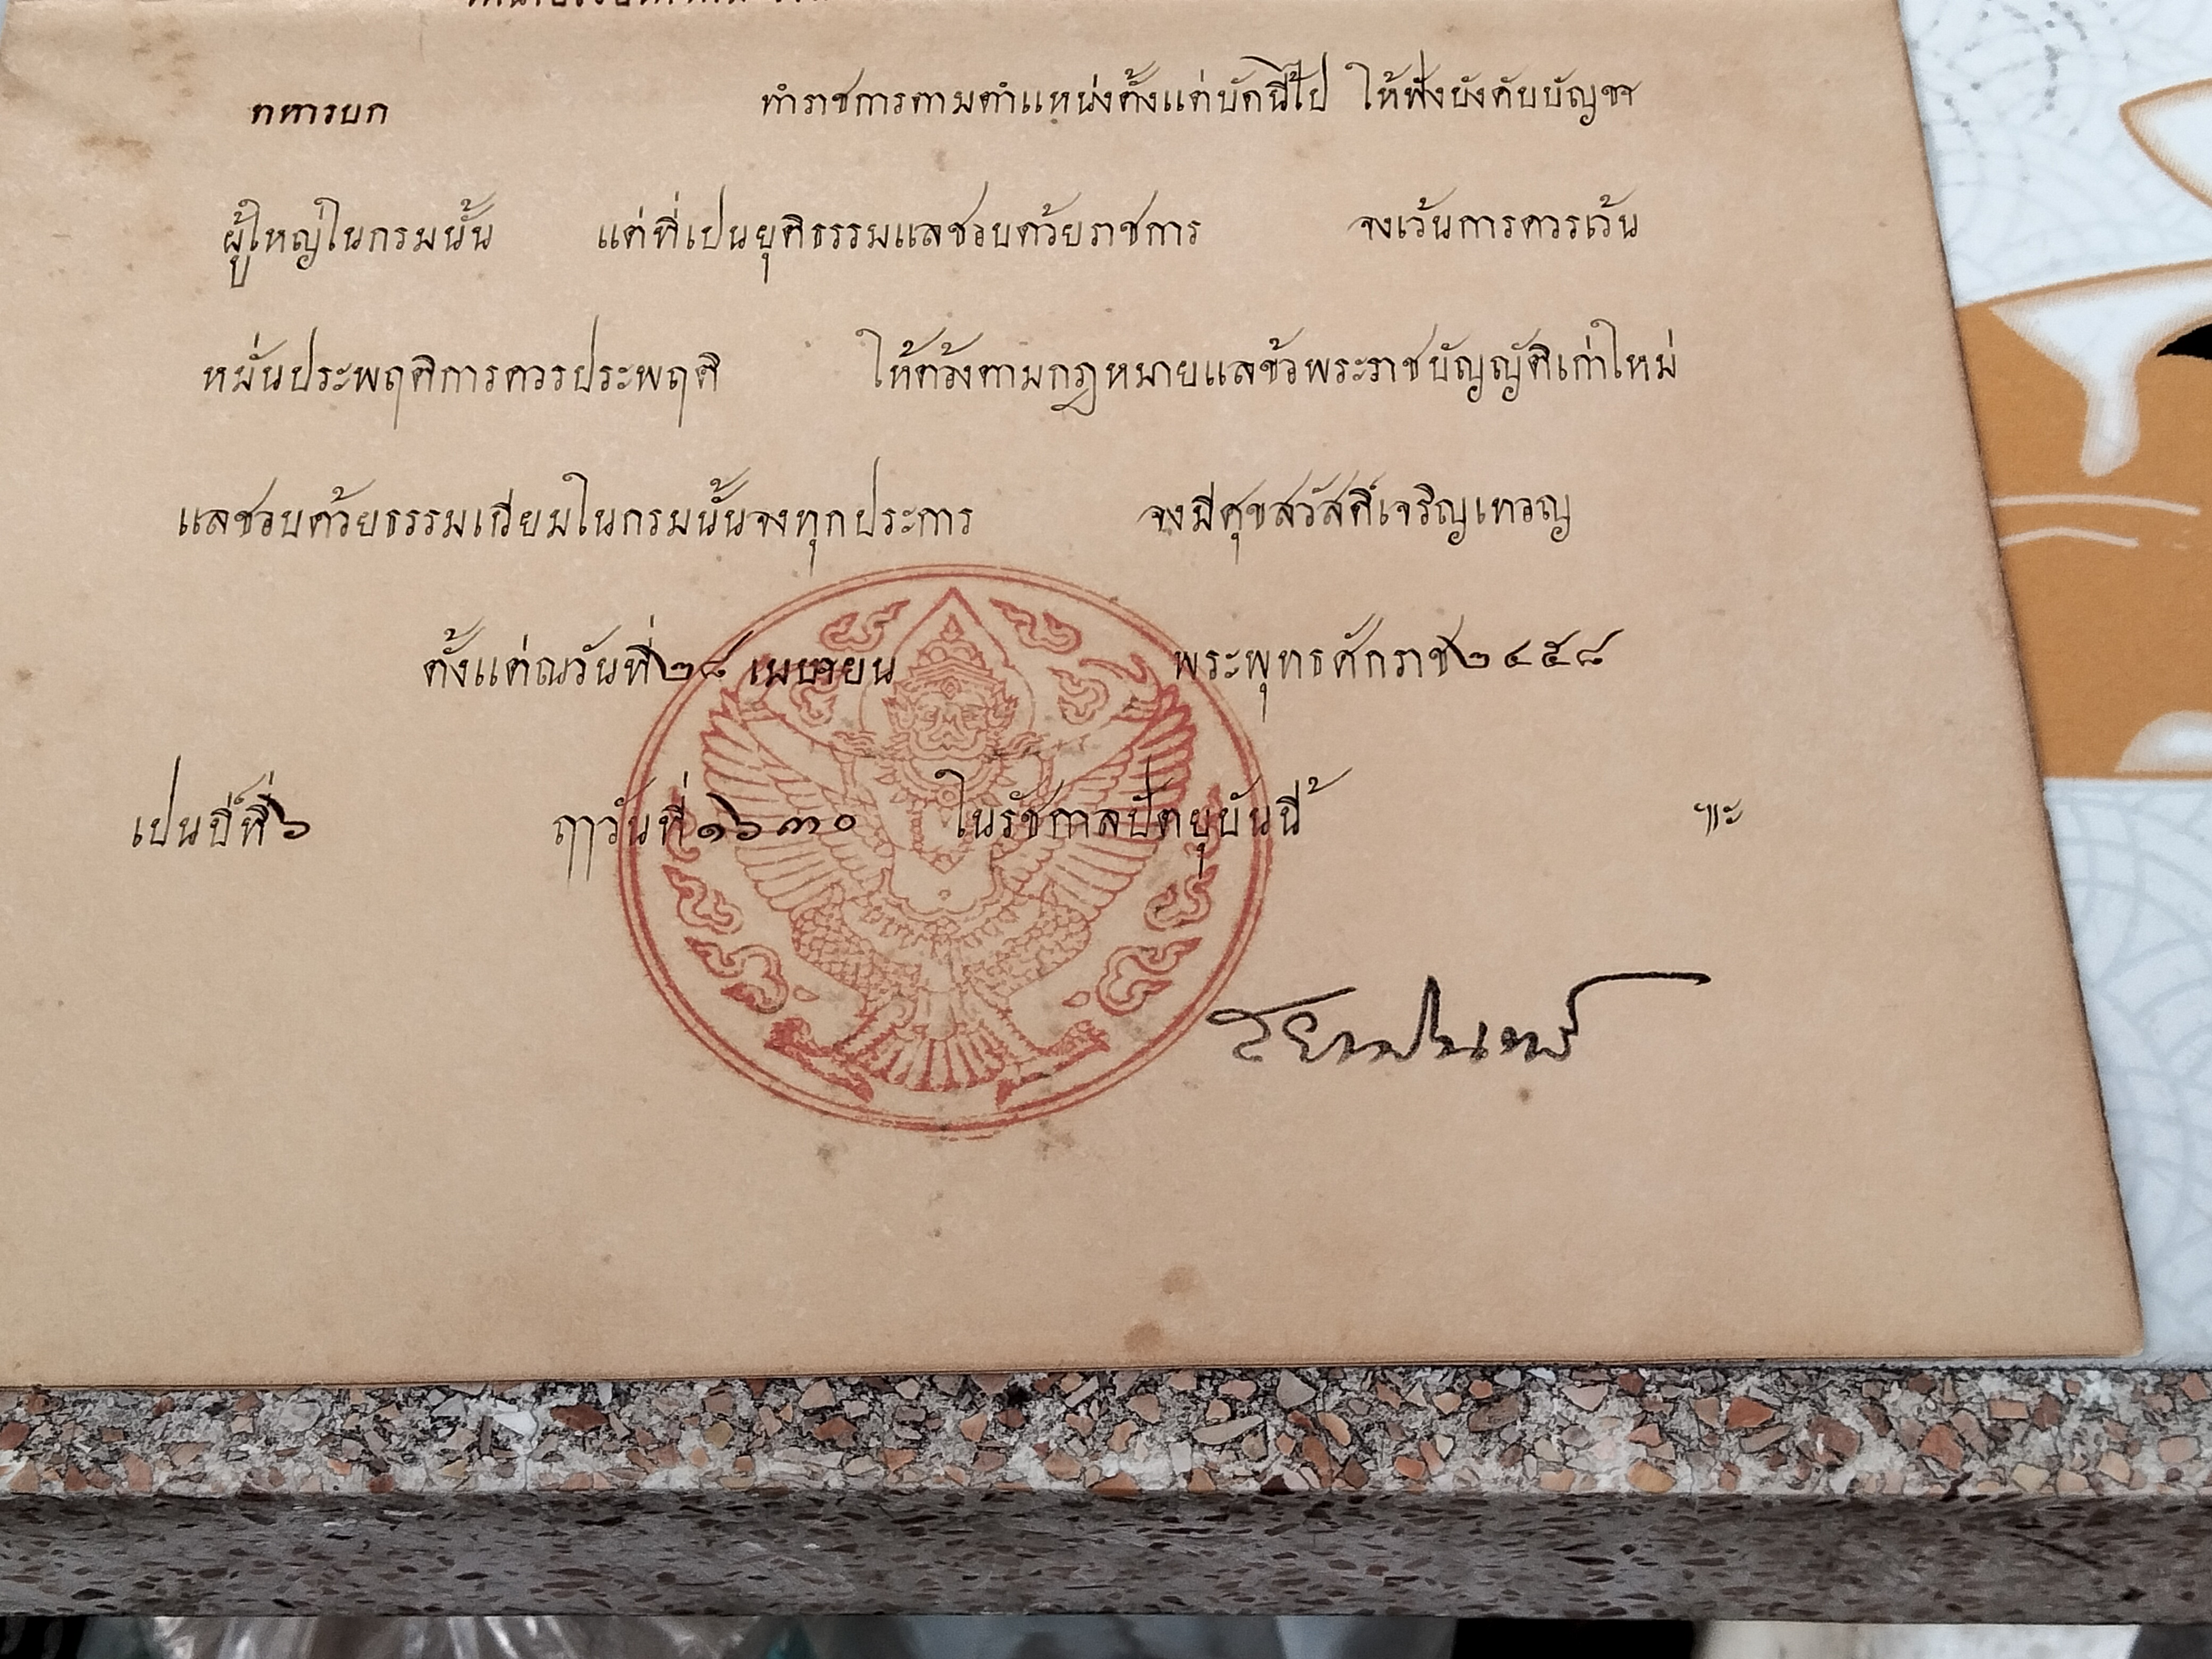 ทหารบก ทำราชการตามตำแหน่งตั้งแต่บัดนี้ไป ให้ฟังบังคับบัญชา
ผู้ใหญ่ในกรมนั้น แต่ที่เปนยุติธรรมแลชอบด้วยราชการ จงเว้นการควรเว้น
หมั่นประพฤติการควรประพฤติ ให้ต้องตามกฎหมายแลข้อพระราชบัญญัติเก่าใหม่
แลชอบด้วยธรรมเนียมในกรมนั้นจงทุกประการ จงมีศุขสวัสดิ์เจริญเทอญ
ตั้งแต่ณวันที่ ๒๘ เมษายน พระพุทธศักราช ๒๔๕๘
เปนปีที่ ๖ ฤๅวันที่ ๑๖๓๐ ในรัชกาลปัตยุบันนี้ ฯะ
สยามินทร์